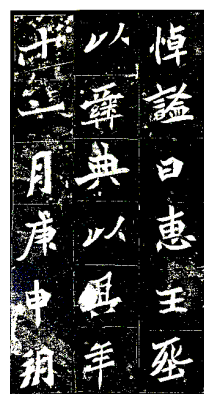 悼謚曰惠王丞
以彝典以其年
十二月庚申朔